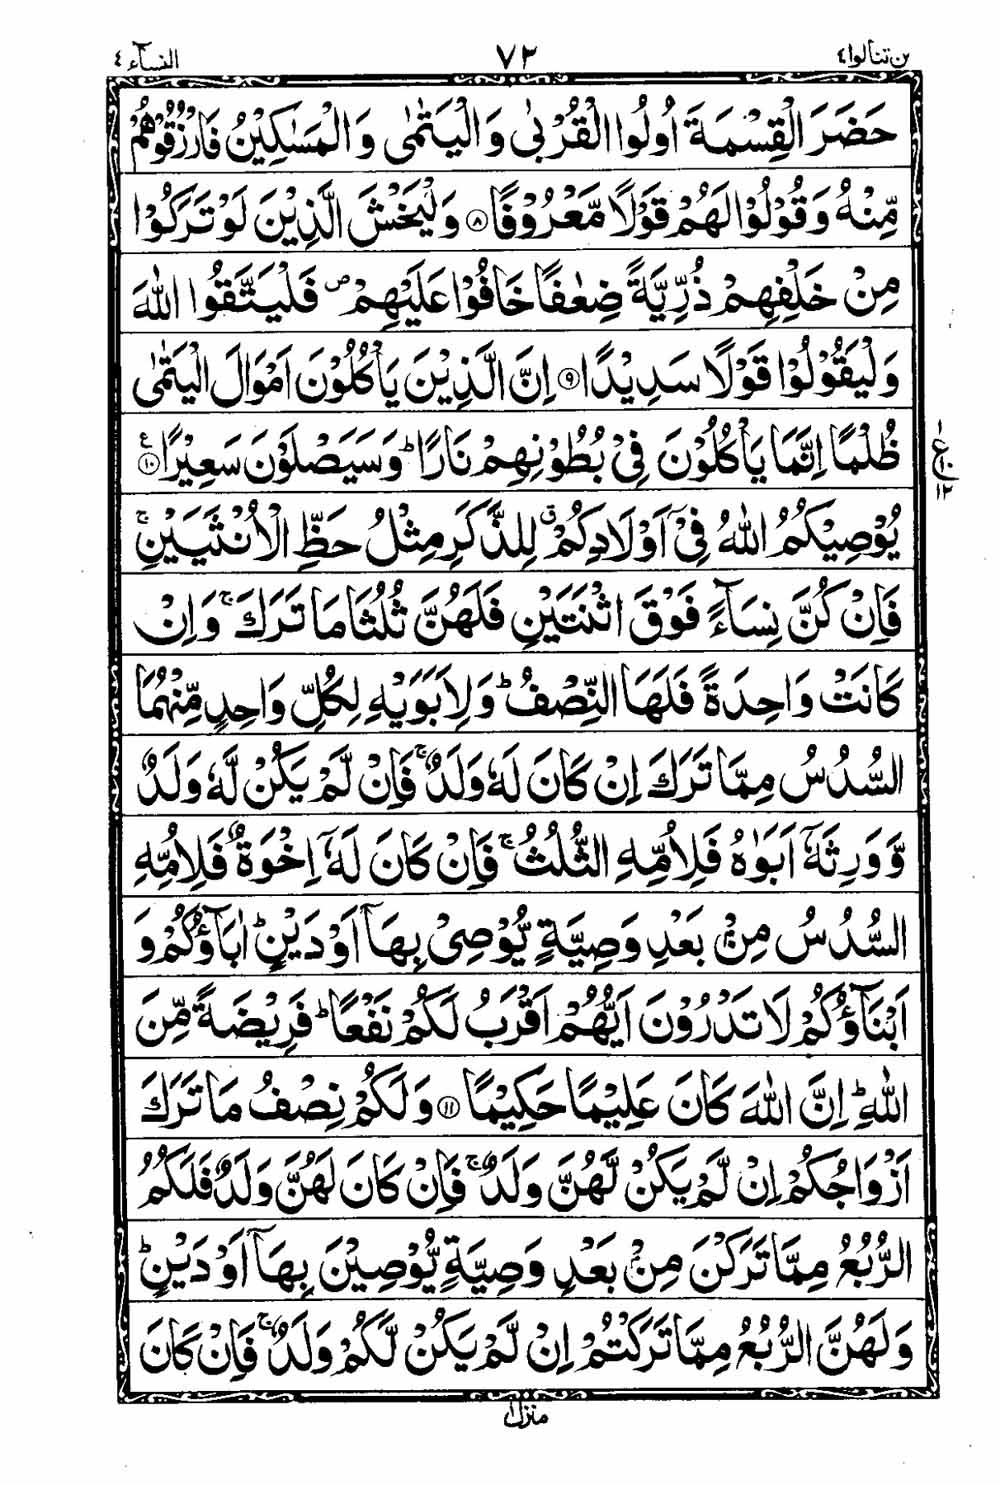 لن تنالوا ٤ ٧٢ النسآء ٤
حَضَرَ الْقِسْمَةَ اُولُوا الْقُرْبٰى وَالْيَتٰمٰى وَالْمَسٰكِيْنُ فَارْزُقُوْهُمْ
مِّنْهُ وَقُوْلُوْا لَهُمْ قَوْلًا مَّعْرُوْفًا ۝٨ وَلْيَخْشَ الَّذِيْنَ لَوْ تَرَكُوْا
مِنْ خَلْفِهِمْ ذُرِّيَّةً ضِعٰفًا خَافُوْا عَلَيْهِمْ ۖ فَلْيَتَّقُوا اللّٰهَ
وَلْيَقُوْلُوْا قَوْلًا سَدِيْدًا ۝٩ اِنَّ الَّذِيْنَ يَاْكُلُوْنَ اَمْوَالَ الْيَتٰمٰى
ظُلْمًا اِنَّمَا يَاْكُلُوْنَ فِيْ بُطُوْنِهِمْ نَارًا ؕ وَسَيَصْلَوْنَ سَعِيْرًا ۝١٠ ع
١ ع ١٠ ١٢
يُوْصِيْكُمُ اللّٰهُ فِيْۤ اَوْلَادِكُمْ ۗ لِلذَّكَرِ مِثْلُ حَظِّ الْاُنْثَيَيْنِ ۚ
فَاِنْ كُنَّ نِسَآءً فَوْقَ اثْنَتَيْنِ فَلَهُنَّ ثُلُثَا مَا تَرَكَ ۚ وَاِنْ
كَانَتْ وَاحِدَةً فَلَهَا النِّصْفُ ؕ وَلِاَبَوَيْهِ لِكُلِّ وَاحِدٍ مِّنْهُمَا
السُّدُسُ مِمَّا تَرَكَ اِنْ كَانَ لَهٗ وَلَدٌ ۚ فَاِنْ لَّمْ يَكُنْ لَّهٗ وَلَدٌ
وَّوَرِثَهٗۤ اَبَوٰهُ فَلِاُمِّهِ الثُّلُثُ ۚ فَاِنْ كَانَ لَهٗۤ اِخْوَةٌ فَلِاُمِّهِ
السُّدُسُ مِنْۢ بَعْدِ وَصِيَّةٍ يُّوْصِيْ بِهَاۤ اَوْ دَيْنٍ ؕ اٰبَآؤُكُمْ وَ
اَبْنَآؤُكُمْ لَا تَدْرُوْنَ اَيُّهُمْ اَقْرَبُ لَكُمْ نَفْعًا ؕ فَرِيْضَةً مِّنَ
اللّٰهِ ؕ اِنَّ اللّٰهَ كَانَ عَلِيْمًا حَكِيْمًا ۝١١ وَلَكُمْ نِصْفُ مَا تَرَكَ
اَزْوَاجُكُمْ اِنْ لَّمْ يَكُنْ لَّهُنَّ وَلَدٌ ۚ فَاِنْ كَانَ لَهُنَّ وَلَدٌ فَلَكُمُ
الرُّبُعُ مِمَّا تَرَكْنَ مِنْۢ بَعْدِ وَصِيَّةٍ يُّوْصِيْنَ بِهَاۤ اَوْ دَيْنٍ ؕ
وَلَهُنَّ الرُّبُعُ مِمَّا تَرَكْتُمْ اِنْ لَّمْ يَكُنْ لَّكُمْ وَلَدٌ ۚ فَاِنْ كَانَ
منزل ١